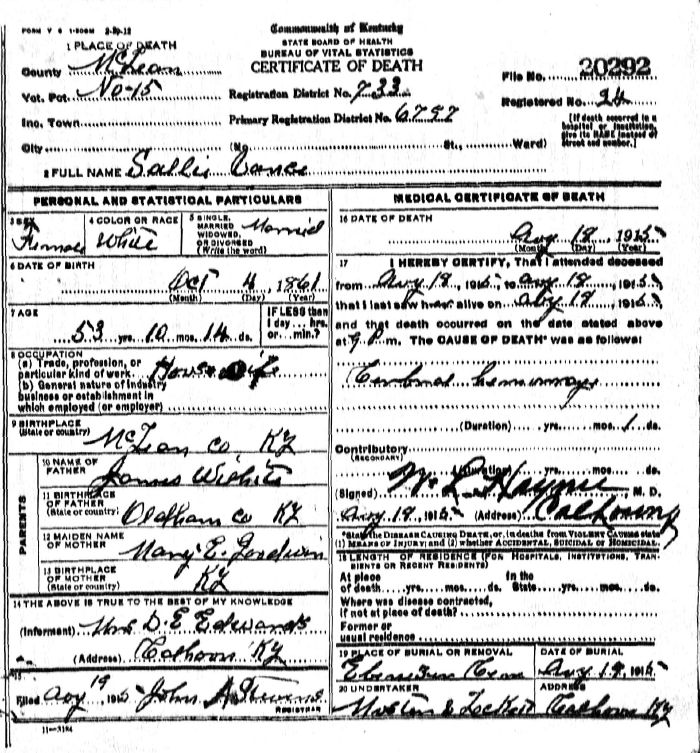 FORM V S 1-50M 2-29-12
Commonwealth of Kentucky
STATE BOARD OF HEALTH
BUREAU OF VITAL STATISTICS
CERTIFICATE OF DEATH
1 PLACE OF DEATH
County McLean
Vot. Pct. No-15
Inc. Town
City
Registration District No. 733
Primary Registration District No. 6797
(No. St., Ward)
File No. 20292
Registered No. 24
[If death occurred in a
hospital or institution,
give its NAME instead of
street and number.]
2 FULL NAME Sallie Vance
PERSONAL AND STATISTICAL PARTICULARS
3 SEX
Female
4 COLOR OR RACE
White
5 SINGLE,
MARRIED
WIDOWED,
OR DIVORCED
(Write the word)
Married
6 DATE OF BIRTH
Oct 4 1861
(Month) (Day) (Year)
7 AGE
53 yrs. 10 mos. 14 ds.
IF LESS than
1 day... hrs.
or... min.?
8 OCCUPATION
(a) Trade, profession, or
particular kind of work House Wife
(b) General nature of industry
business or establishment in
which employed (or employer)
9 BIRTHPLACE
(State or country)
McLean Co, KY
PARENTS
10 NAME OF
FATHER
James Wilhite
11 BIRTHPLACE
OF FATHER
(State or country)
Oldham Co KY
12 MAIDEN NAME
OF MOTHER
Mary E. Goodwin
13 BIRTHPLACE
OF MOTHER
(State or country)
KY
14 THE ABOVE IS TRUE TO THE BEST OF MY KNOWLEDGE
(Informant) Mrs D. E Edwards
(Address) Calhoun KY
15
Filed Aug 19 1915 John A Stevens
REGISTRAR
11-3184
MEDICAL CERTIFICATE OF DEATH
16 DATE OF DEATH
Aug 18 1915
(Month) (Day) (Year)
17 I HEREBY CERTIFY, That I attended deceased
from Aug 18, 1915, to Aug 18, 1915,
that I last saw her alive on Aug 18, 1915,
and that death occurred on the date stated above
at 9 P.m. The CAUSE OF DEATH* was as follows:
Cerebral hemorrhage
(Duration) yrs. mos. 1 ds.
Contributory
(SECONDARY)
(Duration) yrs. mos. ds.
(Signed) W. L. Haynes, M. D.
Aug 18, 1915 (Address) Calhoun
*State the DISEASE CAUSING DEATH, or, in deaths from VIOLENT CAUSES state
(1) MEANS OF INJURY; and (2) whether ACCIDENTAL, SUICIDAL or HOMICIDAL.
18 LENGTH OF RESIDENCE (FOR HOSPITALS, INSTITUTIONS, TRAN-
SIENTS OR RECENT RESIDENTS)
At place In the
of death yrs. mos. ds. State yrs. mos. ds.
Where was disease contracted,
if not at place of death?
Former or
usual residence
19 PLACE OF BURIAL OR REMOVAL
Ebenezer Cem
DATE OF BURIAL
Aug 19 1915
20 UNDERTAKER
ADDRESS
Calhoun KY